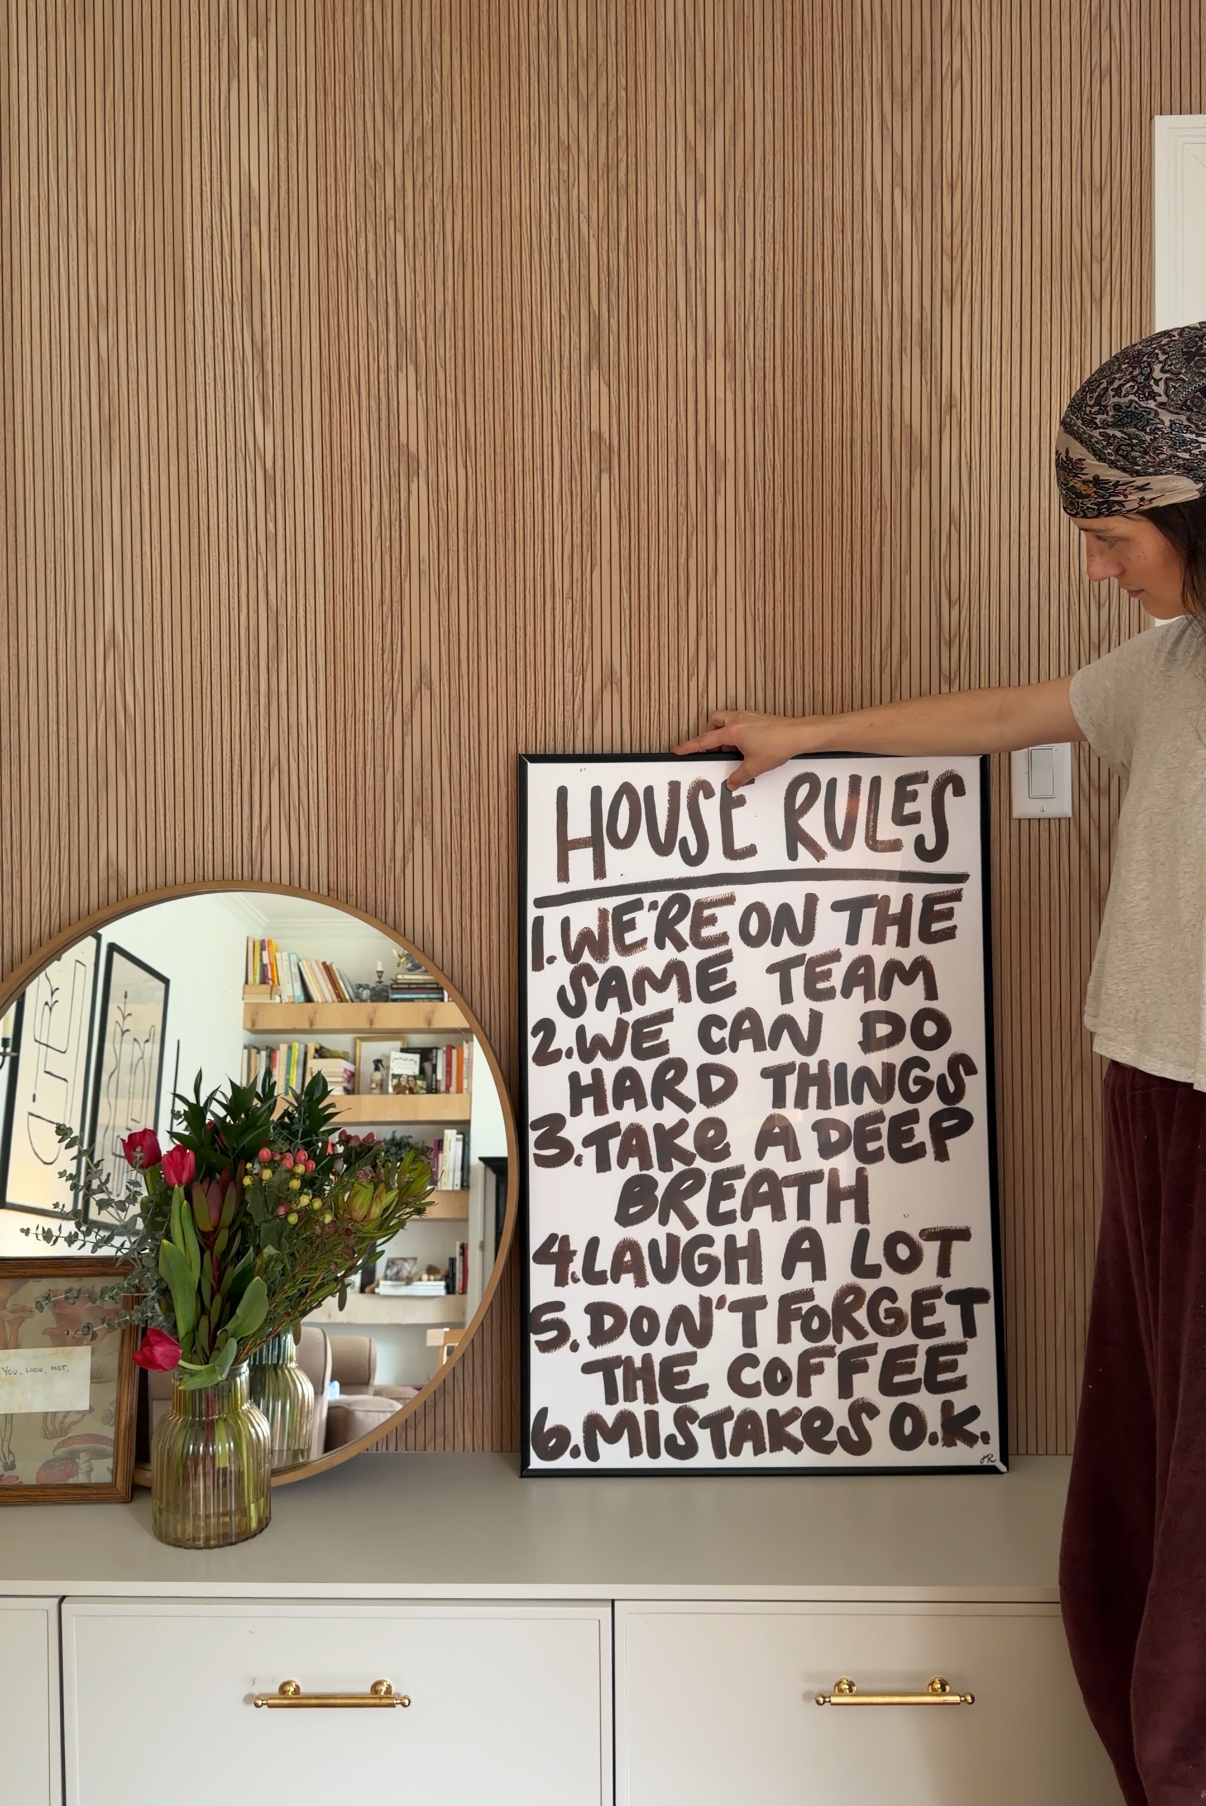 HOUSE RULES
1. WE'RE ON THE
SAME TEAM
2. WE CAN DO
HARD THINGS
3. TAKe A DEEP
BREATH
4. LAUGH A LOT
5. DON'T FORGET
THE COFFEE
6. MISTAKeS O.K.
JR
You. Look. Hot.